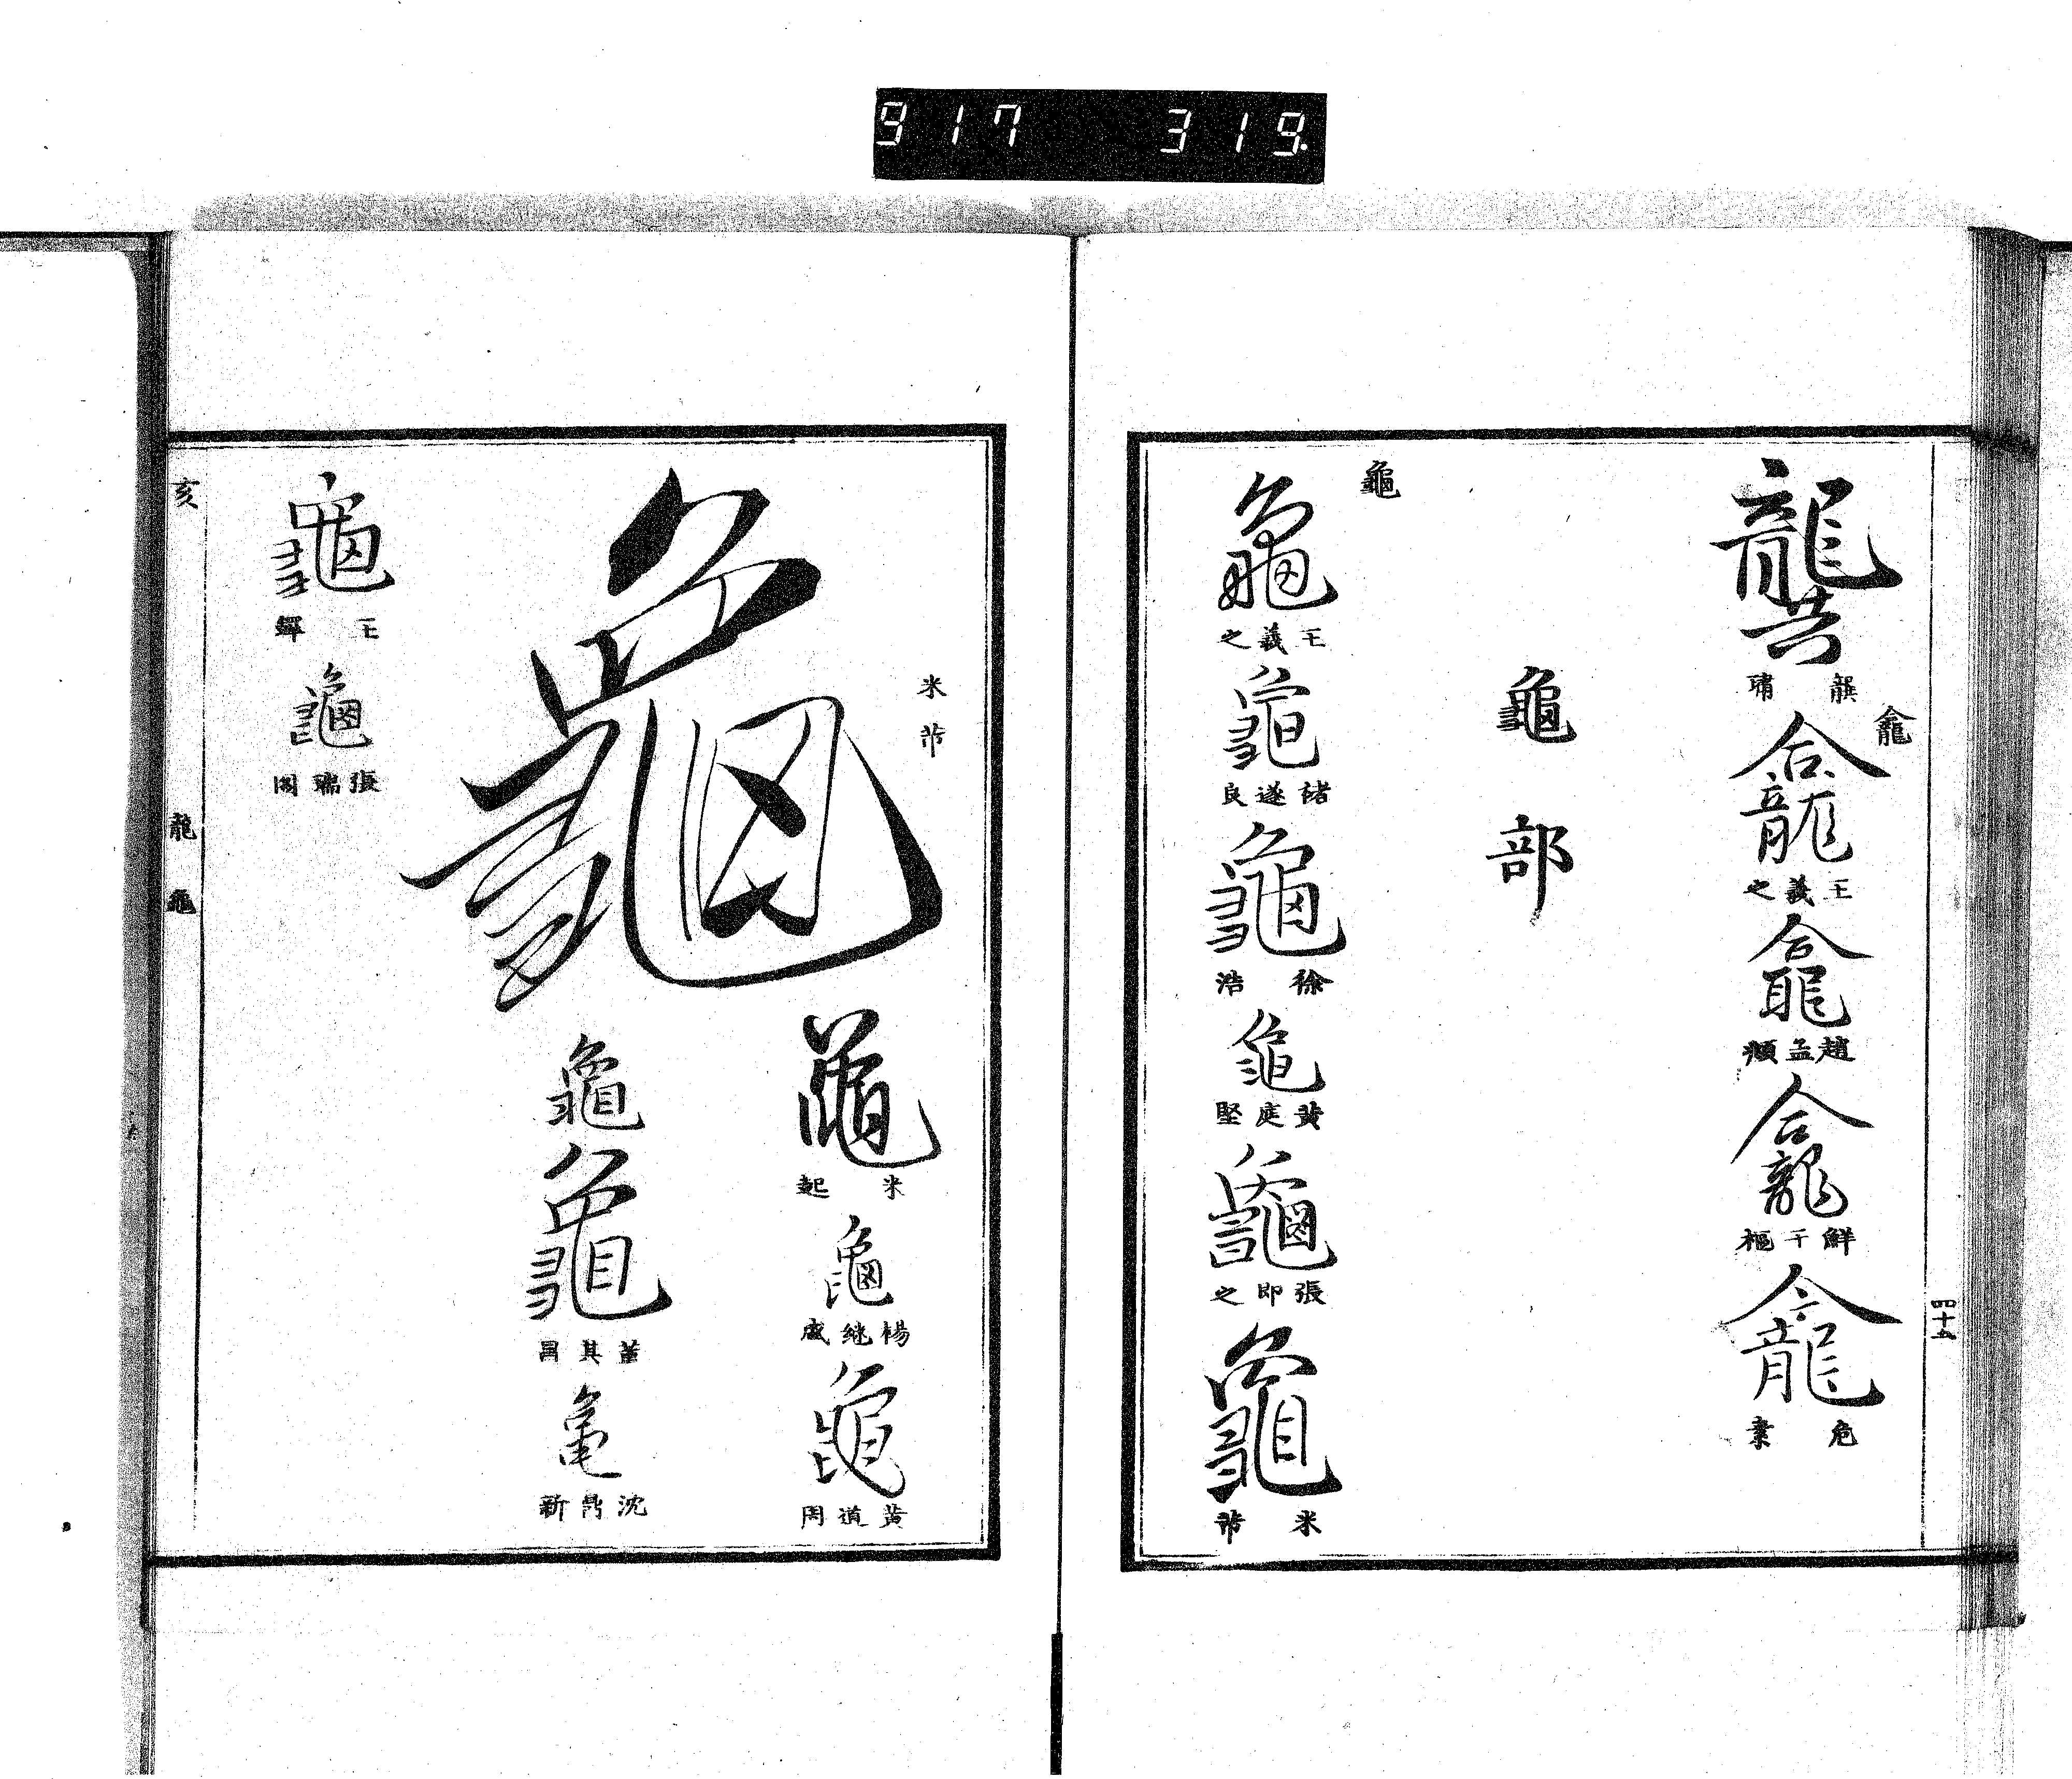 917 319
四十五
龔
龔璛
龕
龕
王羲之
龕
趙孟頫
龕
鮮于樞
龕
危素
龜部
龜
龜
王羲之
龜
褚遂良
龜
徐浩
龜
黄庭堅
龜
張即之
龜
米芾
米芾
龜
龜
米起
龜
楊繼盛
龜
黄道周
龜
龜
董其昌
龜
沈鼎新
龜
王鐸
龜
張瑞圖
亥 龍 龜